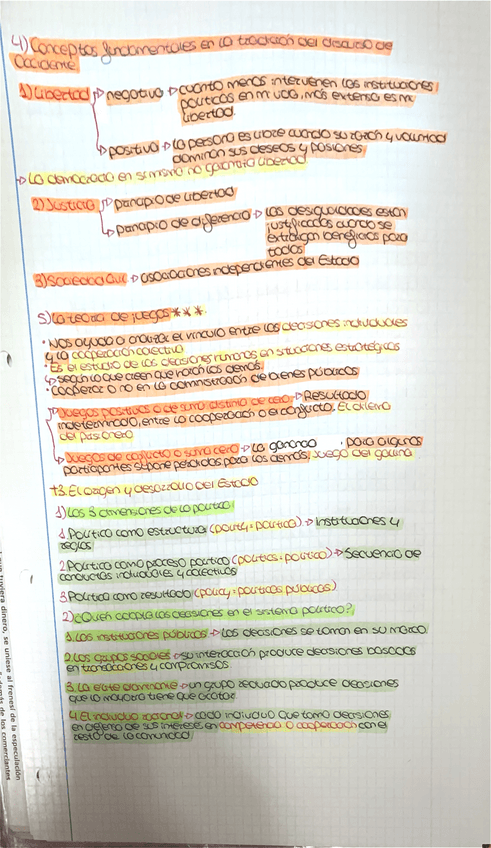 4) Conceptos fundamentales en la tradición del discurso de
occidente
1) Libertad → negativa → cuanto menos intervienen las instituciones
políticas en mi vida, más extensa es mi
libertad.
→ positiva → la persona es libre cuando su razón y voluntad
dominan sus deseos y pasiones.
→ La democracia en si misma no garantiza libertad
2) Justicia → principio de libertad
→ principio de diferencia → las desigualdades están
justificadas cuando se
extraigan beneficios para
todos
3) Sociedad Civil → asociaciones independientes del Estado
5) La teoría de juegos ***
· Nos ayuda a analizar el vínculo entre las decisiones individuales
y la cooperación colectiva
· Es el estudio de las decisiones humanas en situaciones estratégicas
↳ según lo que crean que harán los demás.
· Cooperar o no en la administración de bienes públicos
→ Juegos positivos o de suma distinta de cero → Resultado
indeterminado, entre la cooperación o el conflicto. El dilema
del prisionero
→ Juegos de conflicto o suma cero → La ganancia para algunos
participantes supone pérdidas para los demás. Juego del gallina
T3. El origen y desarrollo del Estado
1) Las 3 dimensiones de la política:
1. Política como estructura (polity = política) → Instituciones y
reglas
2. Política como proceso político (politics = política) → Secuencia de
conductas individuales y colectivas
3. Política como resultado (policy = políticas públicas)
2) ¿Quién adopta las decisiones en el sistema político?
1. Las instituciones públicas → las decisiones se toman en su marco.
2. Los grupos sociales → su interacción produce decisiones basadas
en transacciones y compromisos.
3. La élite dominante → un grupo reducido produce decisiones
que la mayoría tiene que acatar.
4. El individuo racional → cada individuo que toma decisiones
en defensa de sus intereses en competencia o cooperación con el
resto de la comunidad
que tuviera dinero, se uniese al frenesí de la especulación
de los comerciantes